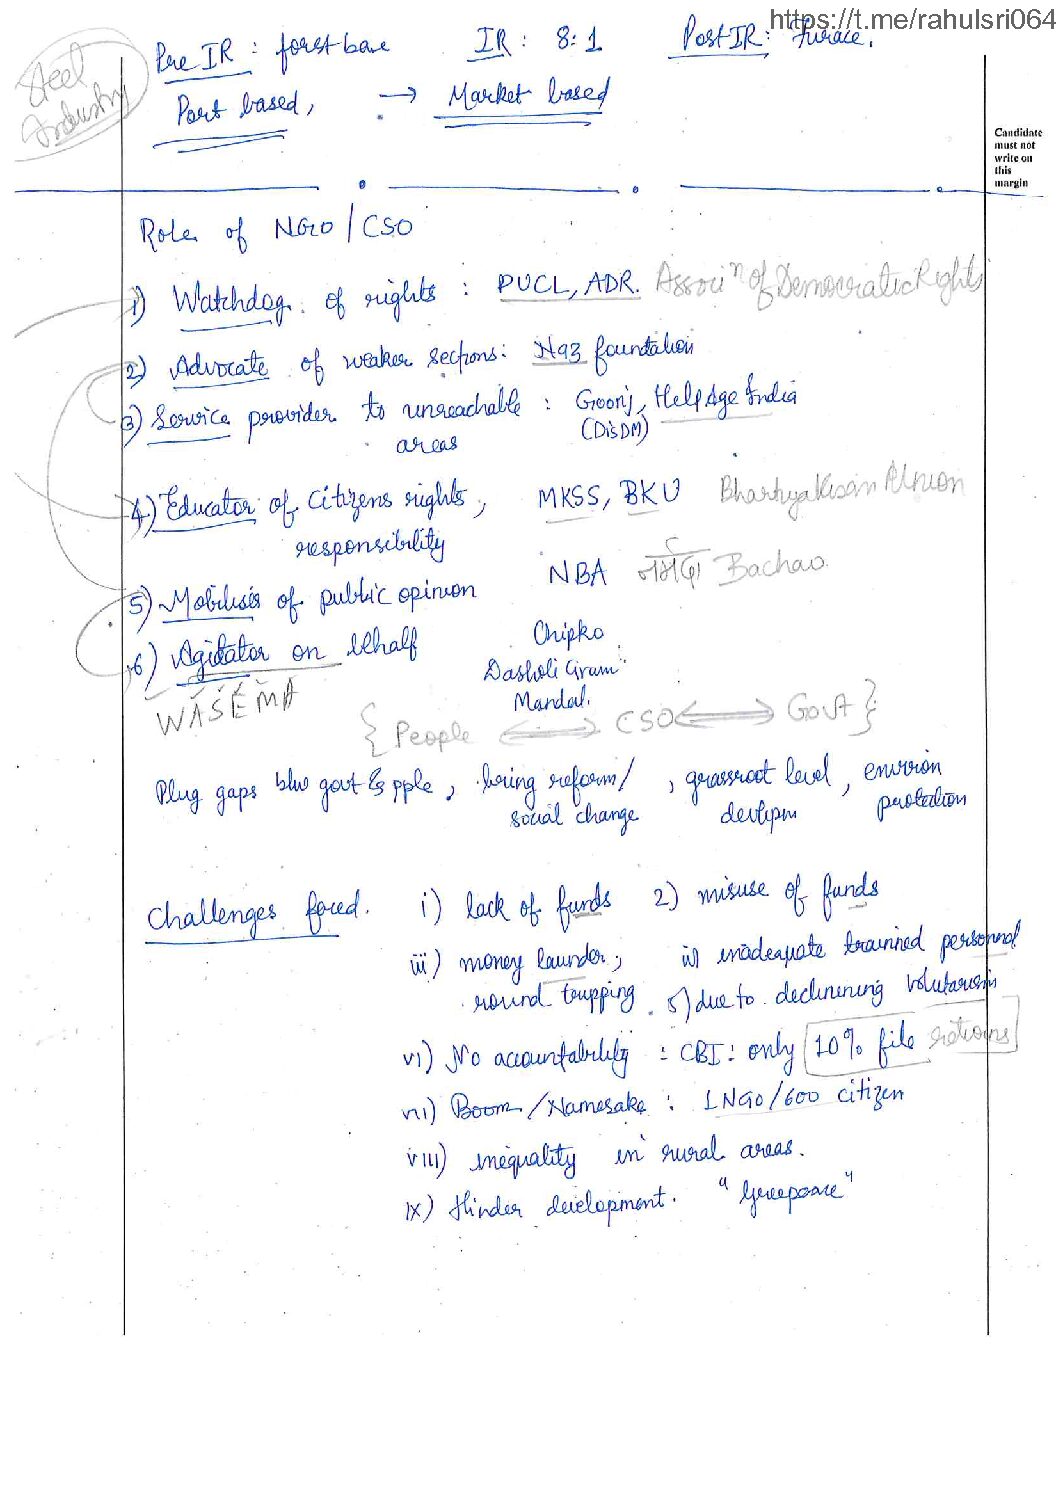 https://t.me/rahulsri064
Steel Industry
Pre IR : forest base IR : 8:1 Post IR : Furace.
Port based, → Market based
Candidate must not write on this margin
Role of NGO / CSO
1) Watchdog of rights : PUCL, ADR. Associⁿ of Democratic Rights
2) Advocate of weaker sections: Naz foundation
3) Service provider to unreachable areas : Goonj, HelpAge India
(DisDM)
4) Educator of Citizens rights, responsibility MKSS, BKU Bhartiya Kisan Union
5) Mobiliser of public opinion NBA नर्मदा Bachao
6) Agitator on behalf Chipko
Dasholi Gram Mandal.
WASEMA
{ People ⟺ CSO ⟺ Govt }
Plug gaps b/w govt & pple, bring reform/social change, grassroot level devlipm, environ protection
Challenges faced. i) lack of funds 2) misuse of funds
iii) money launder, round tripping iv) inadequate trainned personnal
5) due to declinening volutarism
vi) No accountability : CBI : only 10% file retions
vii) Boom / Namesake : 1 NGO/600 citizen
viii) inequality in rural areas.
ix) Hinder development. "Greepeace"